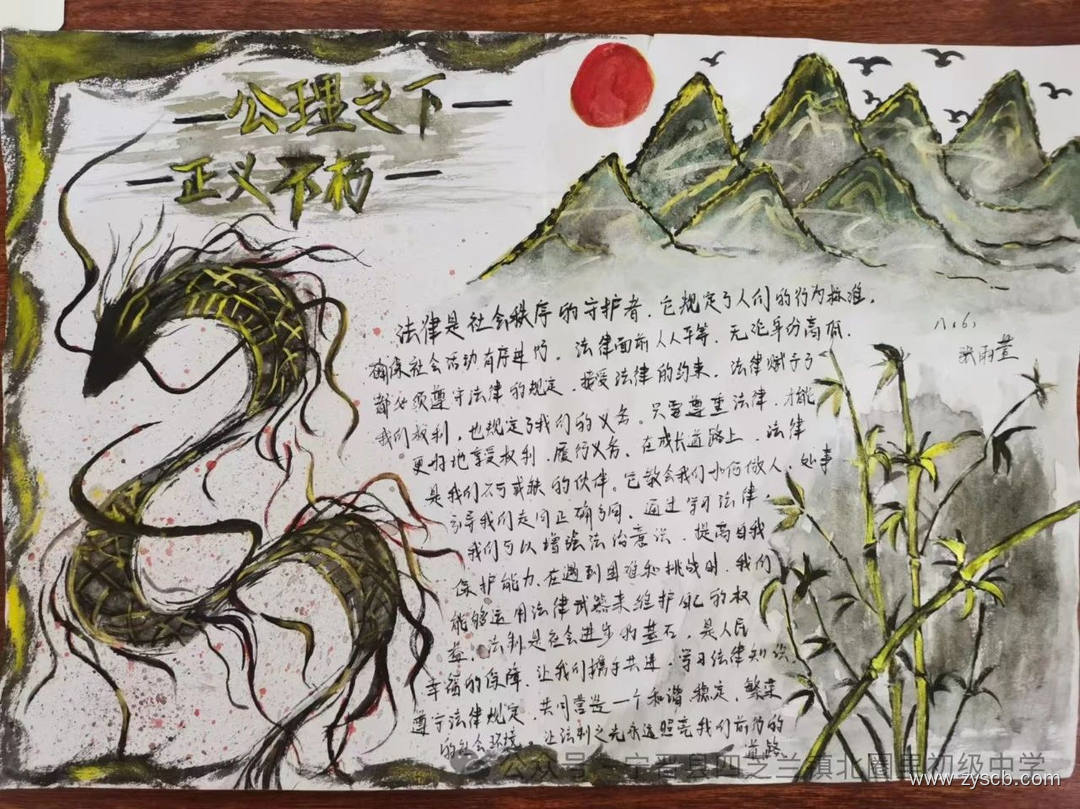 公理之下
正义不朽
法律是社会秩序的守护者，它规定了人们的行为标准，
确保社会活动有序进行。法律面前人人平等，无论身份高低，
都必须遵守法律的规定，接受法律的约束。法律赋予了
我们权利，也规定了我们的义务。只要尊重法律，才能
更好地享受权利，履行义务。在成长道路上，法律
是我们不可或缺的伙伴。它教会我们如何做人，处事
引导我们走向正确方向。通过学习法律，
我们可以增强法治意识，提高自我
保护能力，在遇到困难和挑战时，我们
能够运用法律武器来维护自己的权
益，法制是社会进步的基石，是人民
幸福的保障，让我们携手共进，学习法律知识，
遵守法律规定，共同营造一个和谐、稳定、繁荣
的社会环境，让法制之光永远照亮我们前行的
道路
八、6、
张雨萱
公众号 宁晋县四芝兰镇北圈里初级中学
www.zyscb.com